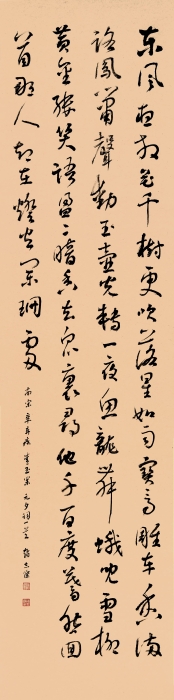 东风夜放花千树更吹落星如雨宝马雕车香满
路凤箫声动玉壶光转一夜鱼龙舞蛾儿雪柳
黄金缕笑语盈盈暗香去众里寻他千百度蓦然回
首那人却在灯火阑珊处
南宋辛弃疾青玉案元夕词一首